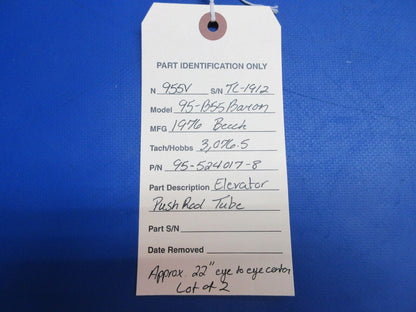 PART IDENTIFICATION ONLY
N 955V S/N TC-1912
Model 95-B55 Baron
MFG 1976 Beech
Tach/Hobbs 3,076.5
P/N 95-524017-8
Part Description Elevator
Push Rod Tube
Part S/N
Date Removed
Approx. 22" eye to eye center
Lot of 2